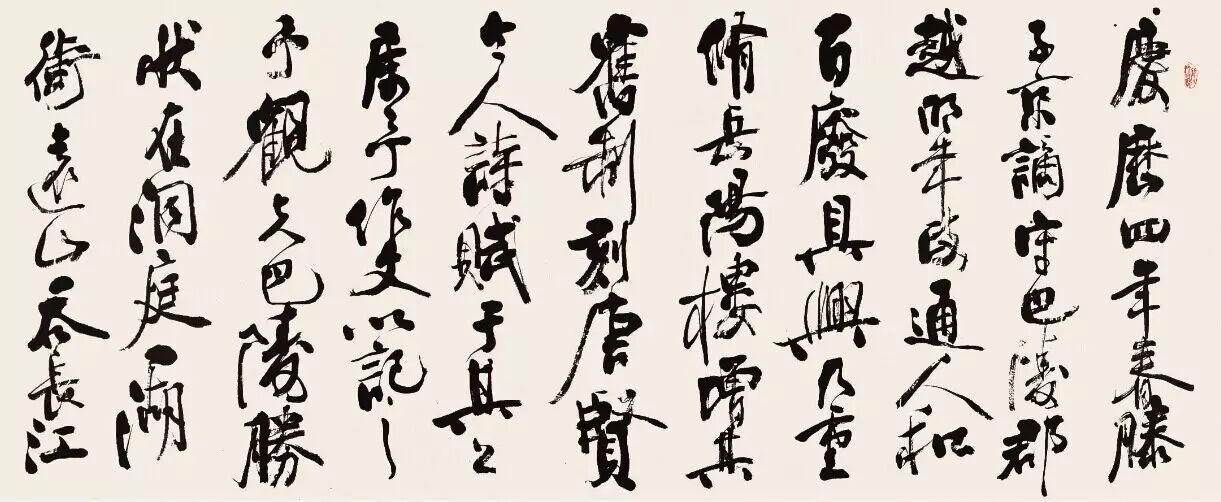 慶曆四年春滕
子京謫守巴陵郡
越明年政通人和
百廢具興乃重
脩岳陽樓增其
舊制刻唐賢
今人詩賦于其上
屬予作文以記之
予觀夫巴陵勝
狀在洞庭一湖
銜遠山吞長江